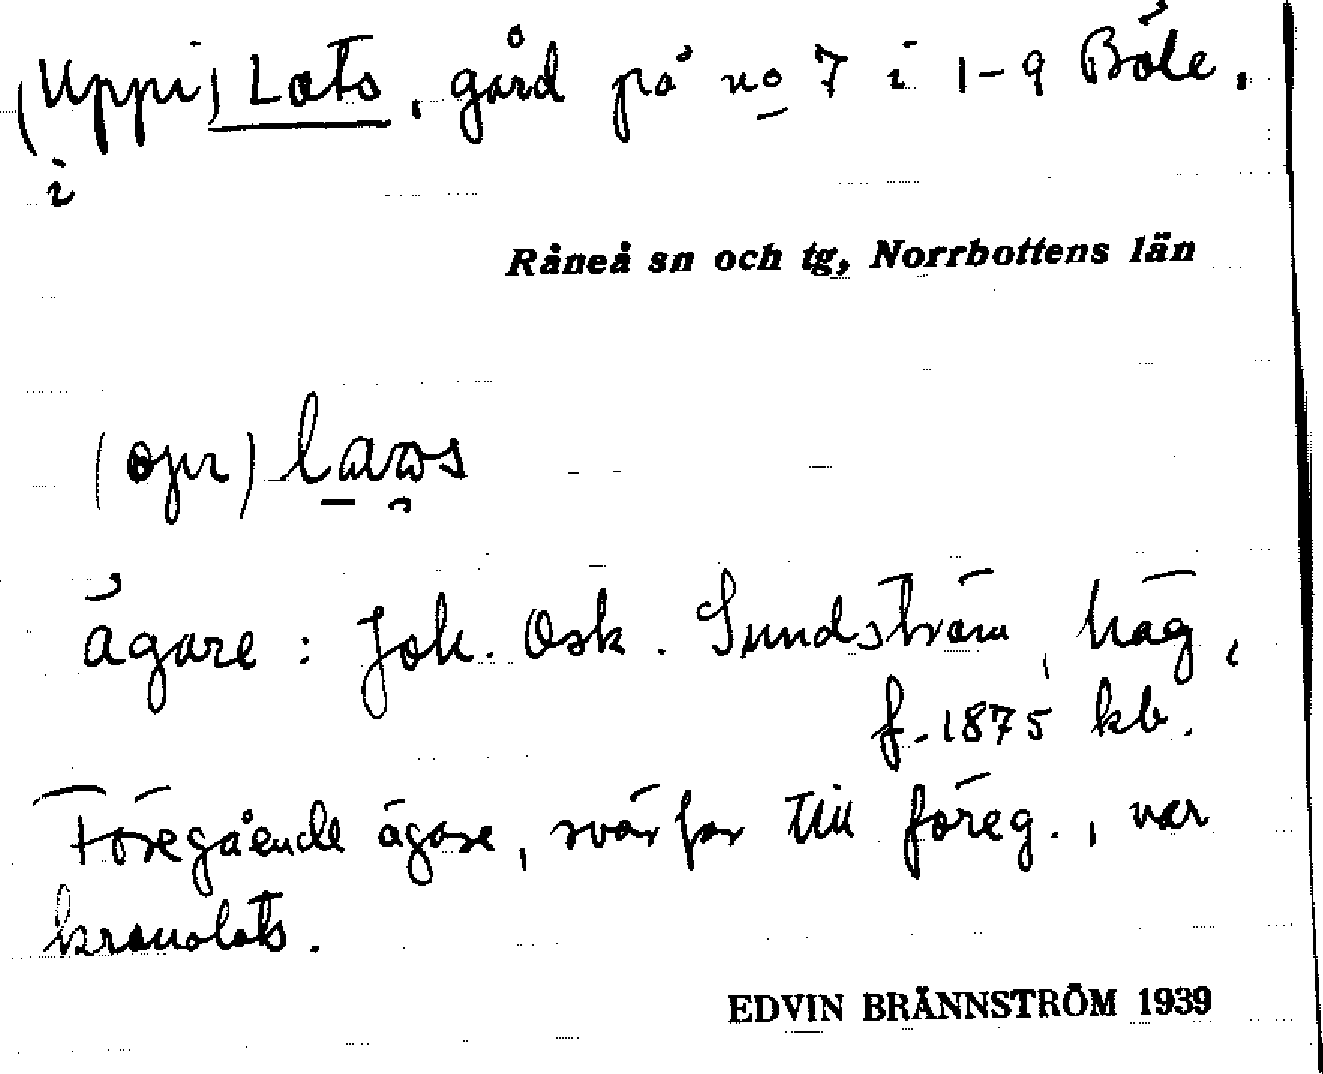 (Uppi) Lots, gård på no 7 i 1-9 Böle,
i
Råneå sn och tg, Norrbottens län
ägare : Joh. Osk. Sundström, häg,
f. 1875 kb.
Föregående ägare, svärfar till föreg., var
kronolots.
EDVIN BRÄNNSTRÖM 1939